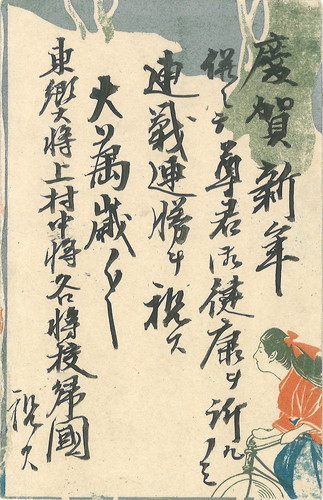 慶賀新年
併シテ尊君御健康ヲ祈ルノミ
連戦連勝ヲ祝ス
大萬歳〱
東郷大将上村中将各将校帰國
祝ス